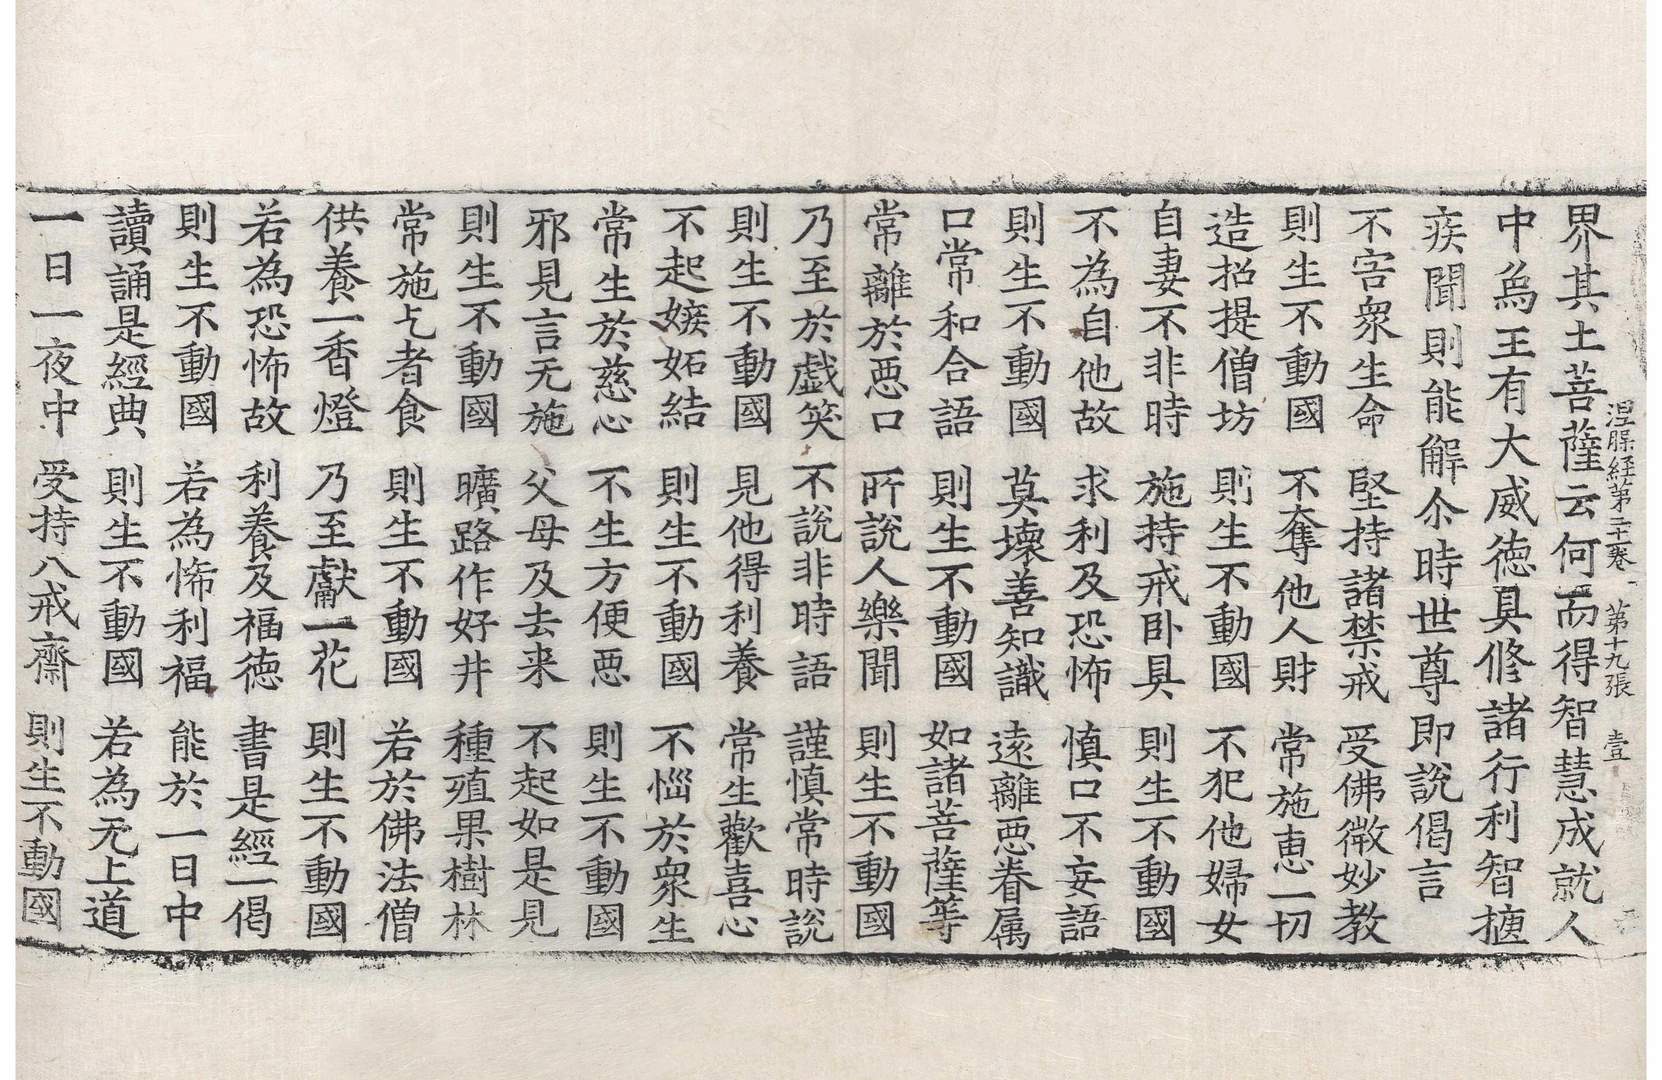 涅槃経第二十一卷 第十九張 壹
界其土菩薩云何而得智慧成就人
中為王有大威徳具修諸行利智揔
疾聞則能解尒時世尊即說偈言
不害衆生命 堅持諸禁戒 受佛微妙教
則生不動國 不奪他人財 常施恵一切
造招提僧坊 則生不動國 不犯他婦女
自妻不非時 施持戒卧具 則生不動國
不為自他故 求利及恐怖 慎口不妄語
則生不動國 莫壞善知識 遠離悪眷属
口常和合語 則生不動國 如諸菩薩等
常離於悪口 所說人樂聞 則生不動國
乃至於戲笑 不說非時語 謹慎常時說
則生不動國 見他得利養 常生歡喜心
不起嫉妬結 則生不動國 不惱於衆生
常生於慈心 不生方便悪 則生不動國
邪見言无施 父母及去来 不起如是見
則生不動國 曠路作好井 種殖果樹林
常施乞者食 則生不動國 若於佛法僧
供養一香燈 乃至獻一花 則生不動國
若為恐怖故 利養及福徳 書是經一偈
則生不動國 若為悕利福 能於一日中
讀誦是經典 則生不動國 若為无上道
一日一夜中 受持八戒齋 則生不動國